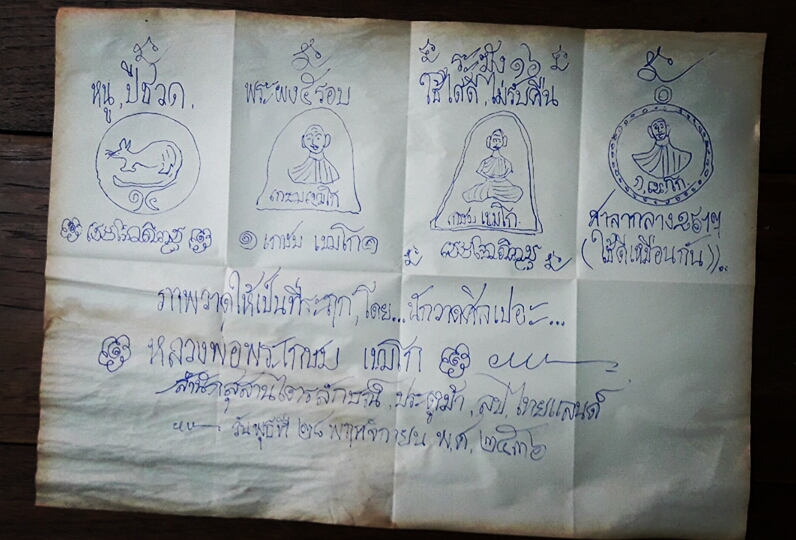 หนู, ปีชวด,
๑๙
พระผง ๕ รอบ
เกษม เขมโก
๑ เกษม เขมโก ๑
ระฆัง ๑๖
ใช้ได้ดี, ไม่รับคืน
เกษม เขมโก
ก. เขมโก
ศาลากลาง
(ใช้ดีเหมือนกัน)..
ภาพวาดให้เป็นที่ระฤก, โดย... นักวาดศิลเปอะ...
หลวงพ่อพระเกษม เขมโก
สำนักสุสานไตรลักษณ์, ประตูม้า, ลป, ไทยแลนด์
วันพุธที่ ๒๘ พฤศจิกายน พ.ศ. ๒๕๓๖